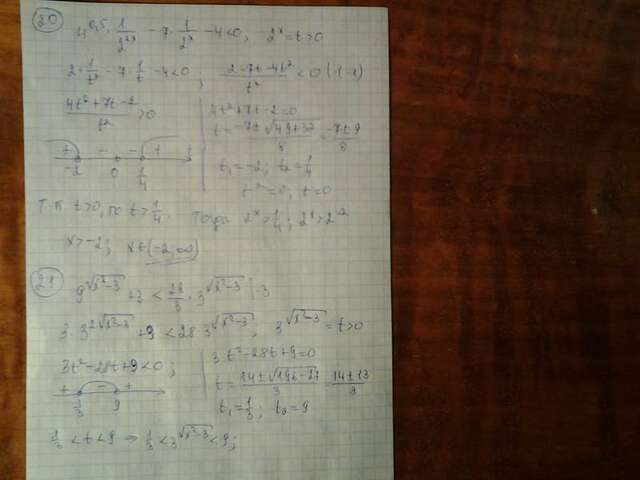 20
4^{0,5} · 1/2^{2x} - 7 · 1/2^x - 4 < 0, 2^x = t > 0
2 · 1/t² - 7 · 1/t - 4 < 0; (2 - 7t - 4t²)/t² < 0 | · (-1)
(4t² + 7t - 2)/t² > 0
4t² + 7t - 2 = 0
t = (-7 ± √(49+32))/8 = (-7 ± 9)/8
+ - - + t
-2 0 1/4
t₁ = -2; t₂ = 1/4
t² = 0, t = 0
Т.к. t > 0, то t > 1/4. Тогда 2^x > 1/4; 2^x > 2^{-2}
x > -2; x ∈ (-2; ∞)
21
9^{√(x²-3)} + 3 < 28/3 · 3^{√(x²-3)} | · 3
3 · 3^{2√(x²-3)} + 9 < 28 · 3^{√(x²-3)}, 3^{√(x²-3)} = t > 0
3t² - 28t + 9 < 0;
3t² - 28t + 9 = 0
t = (14 ± √(196-27))/3 = (14 ± 13)/3
+ - +
1/3 9
t₁ = 1/3; t₂ = 9
1/3 < t < 9 ⇒ 1/3 < 3^{√(x²-3)} < 9;